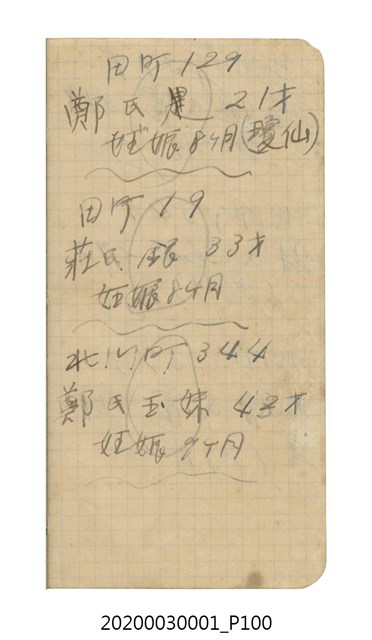 田町129
鄭氏 21才
妊娠8ケ月(瓊仙)
田町19
莊氏銀 33才
妊娠8ケ月
北門町344
鄭氏玉妹 43才
妊娠9ケ月
20200030001_P100